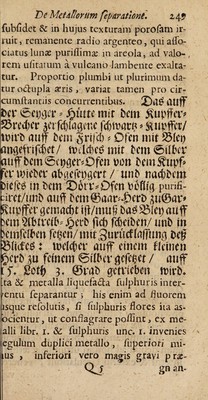 De Metallorum separatione. 249
subsidet & in hujus texturam porosam ir-
ruit, remanente radio argenteo, qui asso-
ciatus lunæ purissimæ in areola, ad valo-
rem usitatum à vulcano lambente exalta-
tur. Proportio plumbi ut plurimum da-
tur octupla æris, variat tamen pro cir-
cumstantiis concurrentibus. Das auff
der Seyger-Hütte mit dem Kupffer-
Brecher zerschlagene schwartz-Kupffer/
wird auff dem Frisch-Ofen mit Bley
angefrischet/ welches mit dem Silber
auff dem Seyger-Ofen von dem Kupf-
fer wieder abgeseygert/ und nachdem
dieses in dem Dörr-Ofen völlig purifi-
ciret/und auff dem Gaar-Herd zu Gar-
Kupffer gemacht ist/muß das Bley auff
dem Abtreib-Herd sich scheiden/ und in
demselben setzen/mit Zurücklassung deß
Blickes: welcher auff einem kleinen
Herd zu seinem Silber gesetzet/ auff
15. Loth 3. Grad getrieben wird.
ita & metalla liquefacta sulphuris inter-
ventu separantur; his enim ad fluorem
usque resolutis, si sulphuris flores ita as-
socientur, ut conflagrare possint, ex me-
talli libr. 1. & sulphuris unc. 1. invenies
regulum duplici metallo, superiori mi-
nus, inferiori vero magis gravi præ-
Q 5 gn an-